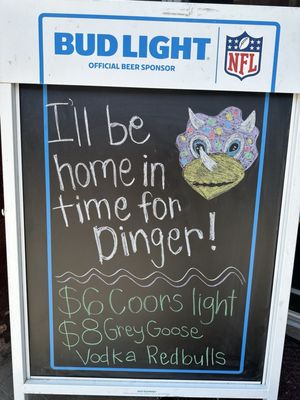 BUD LIGHT
NFL
OFFICIAL BEER SPONSOR
I'll be
home in
time for
Dinger!
$6 Coors light
$8 Grey Goose
Vodka Redbulls